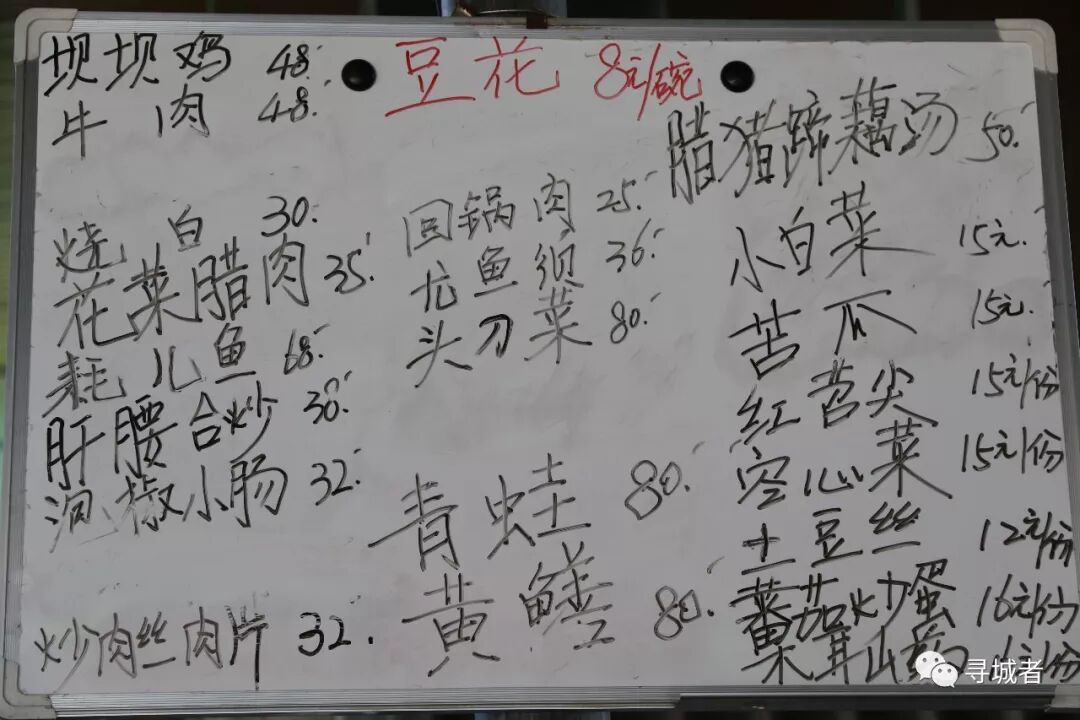 坝坝鸡 48.
牛肉 48.
烧白 30.
花菜腊肉 35.
耗儿鱼 68.
肝腰合炒 38.
泡椒小肠 32.
炒肉丝肉片 32.
豆花 8元/碗
回锅肉 25.
尤鱼须 36.
头刀菜 80.
青蛙 80.
黄鳝 80.
腊猪蹄藕汤 50.
小白菜 15元.
苦瓜 15元.
红苕尖 15元/份
空心菜 15元/份
土豆丝 12元/份
蕃茄炒蛋 16元/份
木耳山药 元/份
寻城者